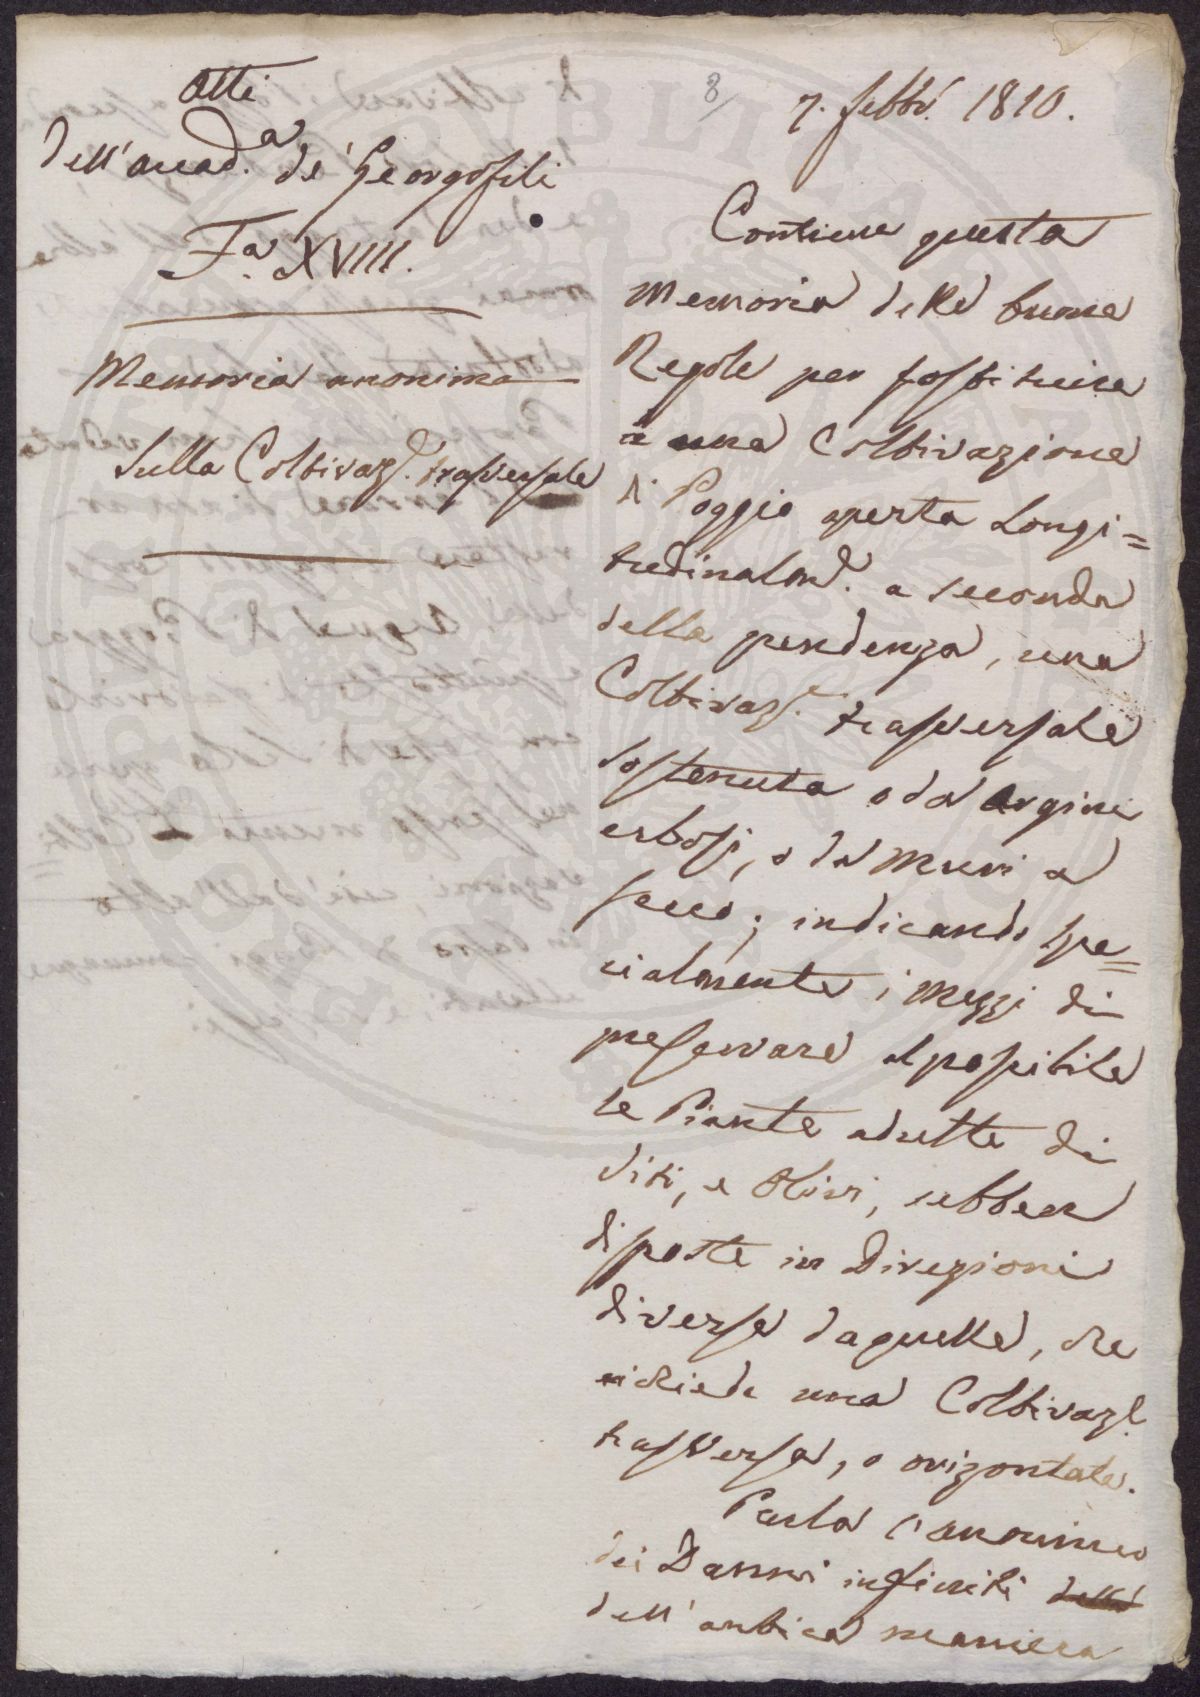 Atti
dell'accad.a de' Georgofili
F.a XVIII.
Memoria anonima
Sulla Coltivaz.e trasversale
8
7. febbr. 1810.
Contiene questa
Memoria delle buone
Regole per sostituire
a una Coltivazione
di Poggio aperta Longi=
tudinalm.e a seconda
della pendenza, una
Coltivaz.e trasversale
sostenuta o da argini
erbosi, o da Muri a
secco; indicando spe=
cialmente i Mezzi di
preservare al possibile
le Piante adulte di
Viti, e Olivi, sebben
disposte in Direzioni
diverse da quelle, che
richiede una Coltivaz.e
trasversa, o orizontale.
Parla l'anonimo
dei Danni infiniti della
dell'antica maniera